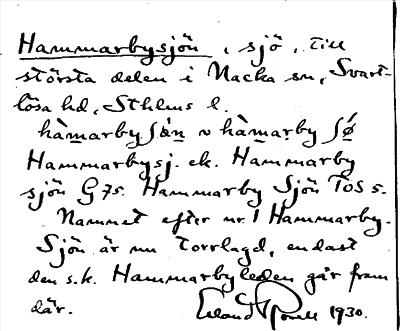 Hammarbysjön, sjö, till
största delen i Nacka sn, Svart-
lösa hd, Sthlms l.
hàmarby ʃön ~ hàmarby ʃǿ
Hammarbysj. ek. Hammarby
sjön G 75. Hammarby Sjön TOS 5.
Namnet efter nr. 1 Hammarby.
Sjön är nu torrlagd, endast
den s.k. Hammarbyleden går fram
där. 1930.